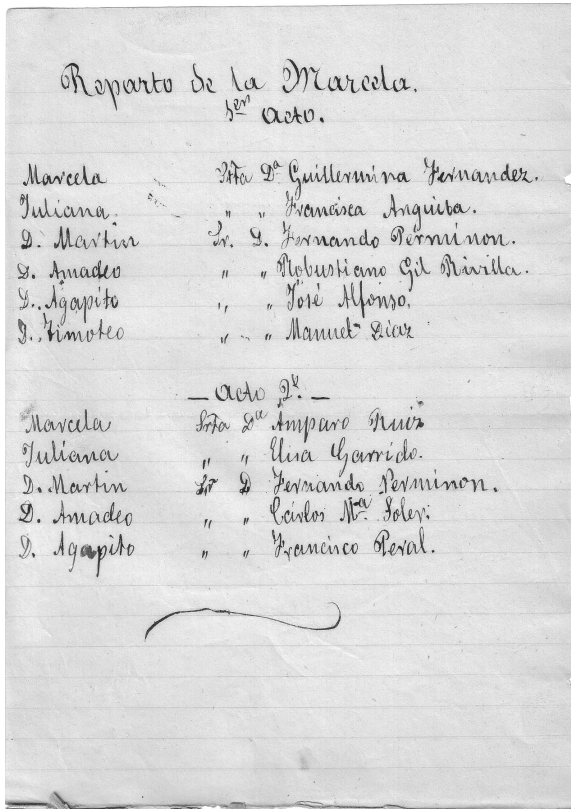 Reparto de la Marcela.
1er Acto.
Marcela Srta Da Guillermina Fernandez.
Juliana. " " Francisca Anguita.
D. Martin Sr. D. Fernando Perminon.
D. Amadeo " " Robustiano Gil Rivilla.
D. Agapito " " José Alfonso.
D. Timoteo " " Manuel Diaz
— Acto 2º. —
Marcela Srta Da Amparo Ruiz
Juliana " " Elisa Garrido.
D. Martin Sr D Fernando Perminon.
D. Amadeo " " Carlos Ma. Soler.
D. Agapito " " Francisco Peral.